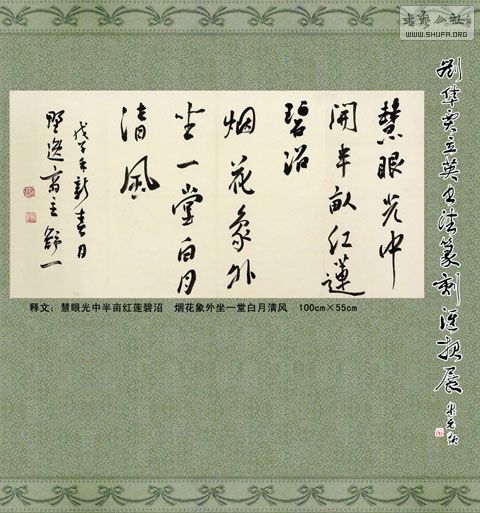 书艺公社
WWW.SHUFA.ORG
劉偉賈立英书法篆刻汇报展
慧眼光中
開半畝红蓮
碧沼
烟花象外
坐一堂白月
清風
戊子新春月
野逸斋主舒一
释文：慧眼光中半亩红莲碧沼　烟花象外坐一堂白月清风　100cm×55cm